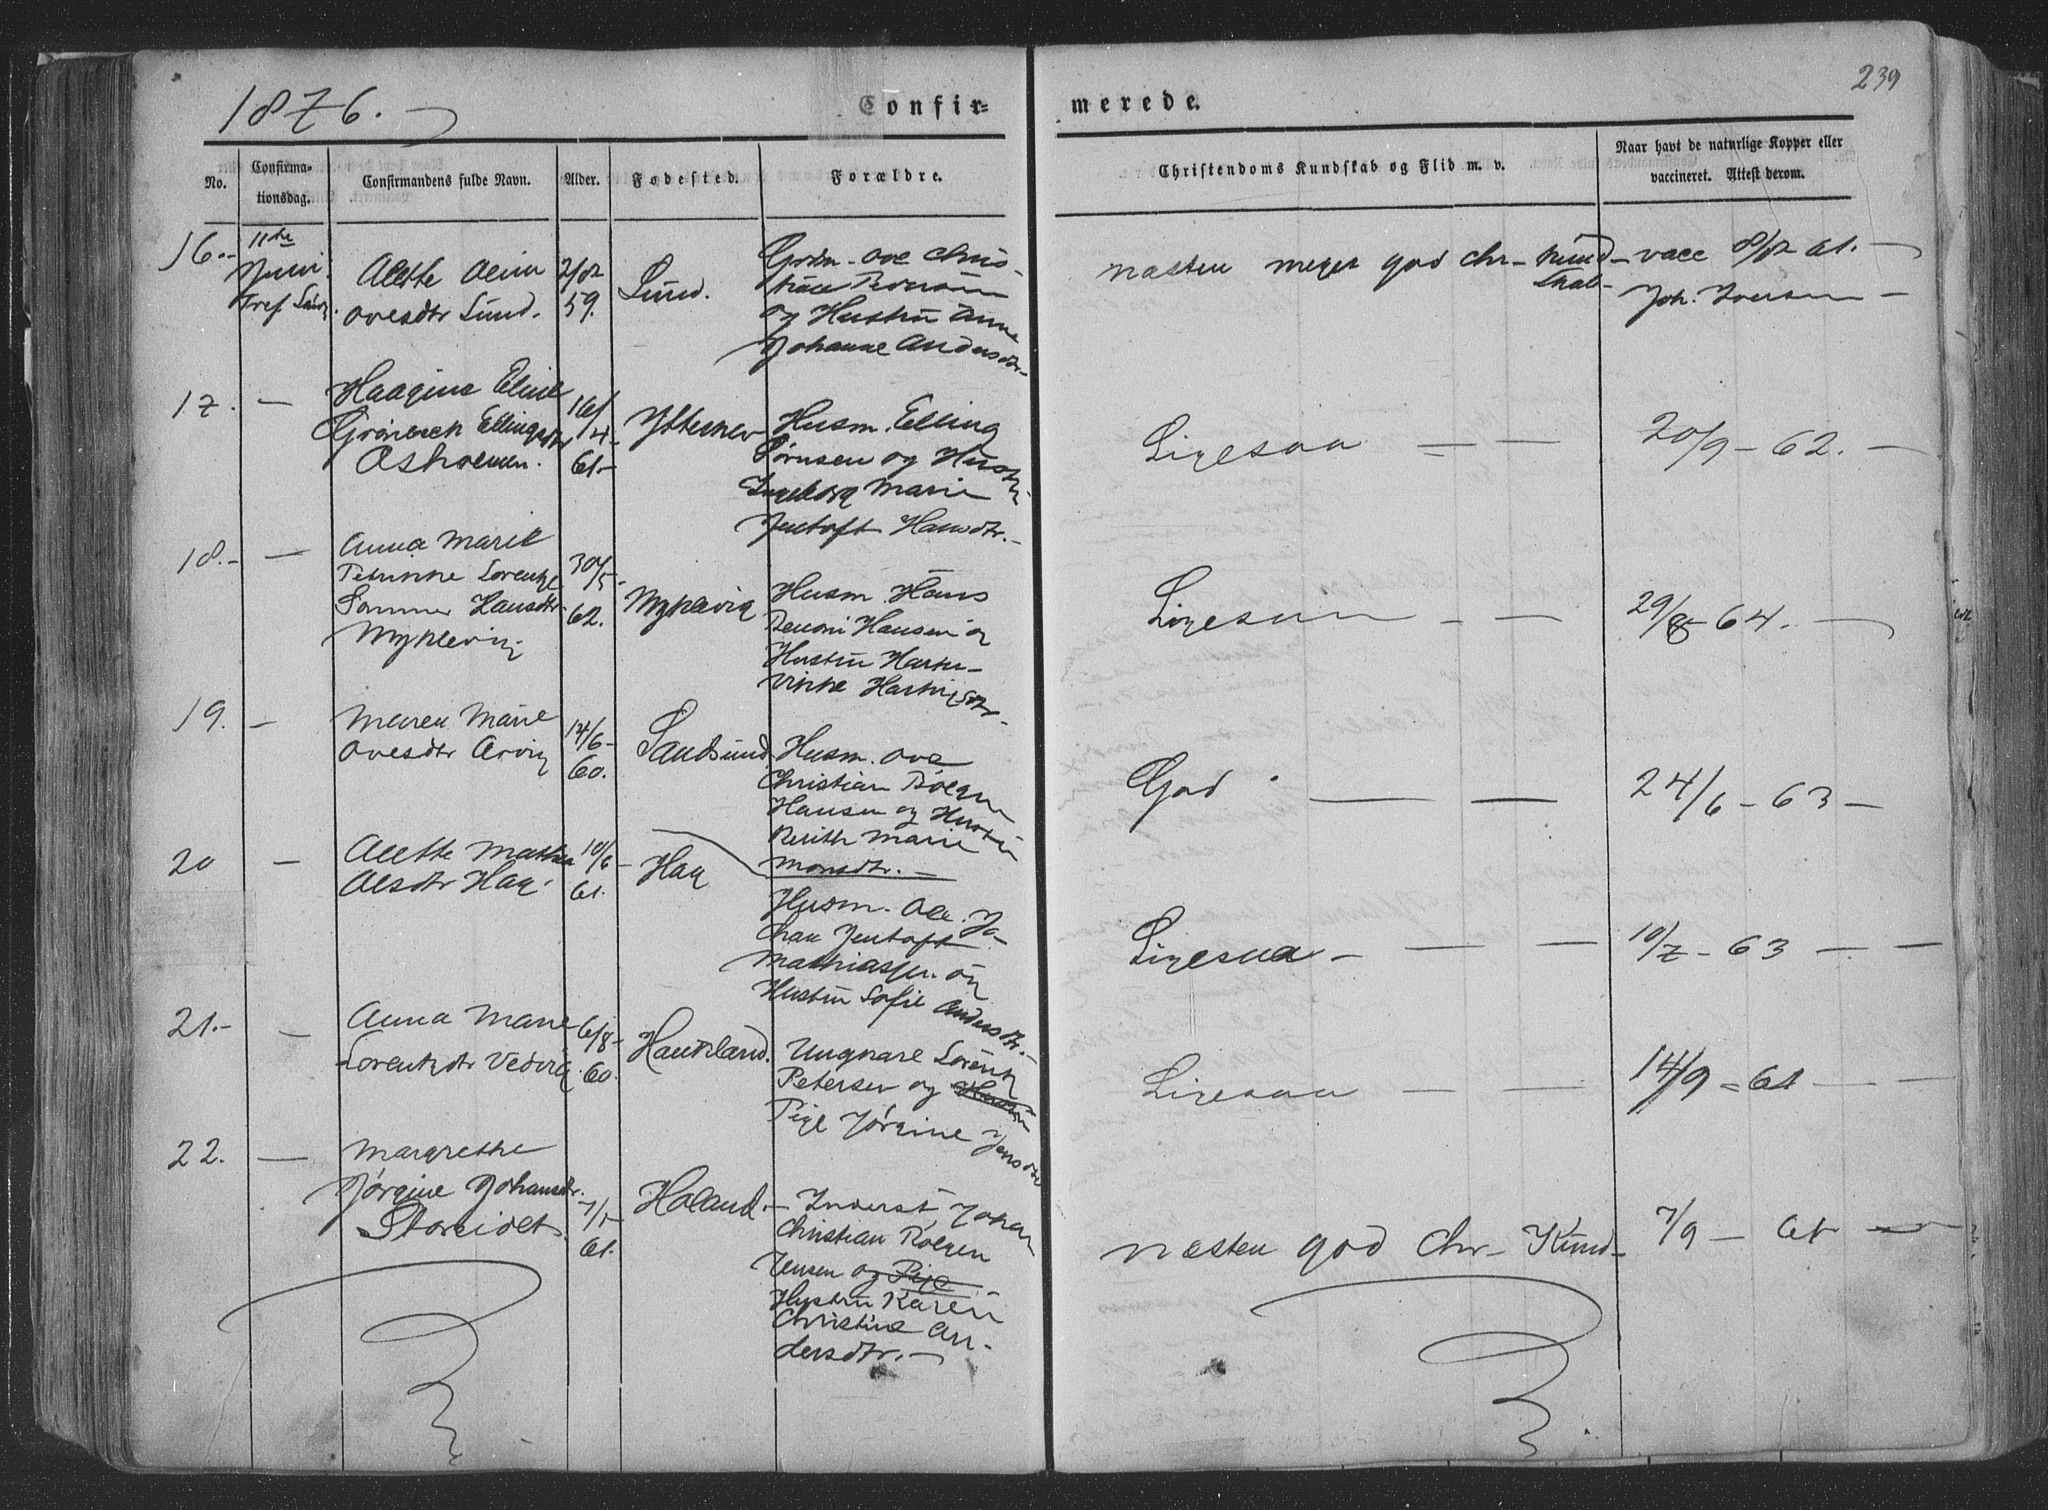 239
1876.
Confir-
merede.
No.
Confirma-
tionsdag.
Confirmandens fulde Navn.
Alder.
Fødested.
Forældre.
Christendoms Kundskab og Flid m. v.
Naar havt de naturlige Kopper eller
vaccineret. Attest derom.
16.
11te
Juni
Tref Sønd.
Alette Oline
Ovesdtr Lund.
2/12
59.
Lund.
Grdm. Ove Chris-
tian Pedersen
og Hustru Anne
Johanne Andersdtr.
næsten meget god Chr. Kund-
skab
vacc 8/12 61.
Joh. Iversen
17. —
Haagine Eline
Grönbech Ellingsdtr
Osholmen.
16/
/4
61
Ytterker
Husm. Elling
Sörnsen og Hustr
Ingeborg Marie
Jentoft Hansdtr.
Ligesaa — —
20/9 - 62. —
18. —
Anna Marie
Petrikke Lorentze
Sommer Hansdtr.
Myklevig
30/5
62.
Myklevig
Husm. Hans
Benoni Hansen og
Hustru Hart-
vikke Hartvigsdtr.
Ligesaa — —
29/8 - 64. —
19. —
Maren Marie
Ovesdtr Arvig
14/6
60.
Sandsund.
Husm. Ove
Christian Bölgen
Hansen og Hustru
Berith Marie
Monsdtr. —
God — —
24/6 - 63 —
20 —
Alette Mathea
Olsdtr Hag.
10/6
61.
Hag
Husm. Ole Jo-
han Jentoft
Mathiassen og
Hustru Sofie Andersdtr.
Ligesaa — — —
10/7 - 63 — —
21. —
Anna Marie
Lorentzdtr Vedvig
6/8
60.
Haukland.
Ungkarl Lorentz
Petersen og Hustru
Pige Jørgine Jensdtr
Ligesaa — —
14/9 - 61 — —
22. —
Margrethe
Jørgine Johansdtr.
Storeidet.
7/1
61.
Holand.
Inderst Johan
Christian Bölgen
Jensen og Pige
Hustru Karen
Christine An-
dersdtr. —
Næsten god Chr. Kund-
7/9 - 61